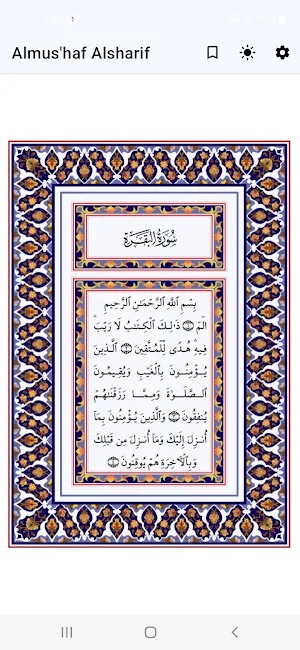 Almus'haf Alsharif
سُورَةُ الْبَقَرَةِ
بِسْمِ ٱللَّهِ ٱلرَّحْمَـٰنِ ٱلرَّحِيمِ
الٓمٓ ۝١ ذَٰلِكَ ٱلْكِتَـٰبُ لَا رَيْبَ ۛ
فِيهِ ۛ هُدًى لِّلْمُتَّقِينَ ۝٢ ٱلَّذِينَ
يُؤْمِنُونَ بِٱلْغَيْبِ وَيُقِيمُونَ
ٱلصَّلَوٰةَ وَمِمَّا رَزَقْنَـٰهُمْ
يُنفِقُونَ ۝٣ وَٱلَّذِينَ يُؤْمِنُونَ بِمَآ
أُنزِلَ إِلَيْكَ وَمَآ أُنزِلَ مِن قَبْلِكَ
وَبِٱلْـَٔاخِرَةِ هُمْ يُوقِنُونَ ۝٤